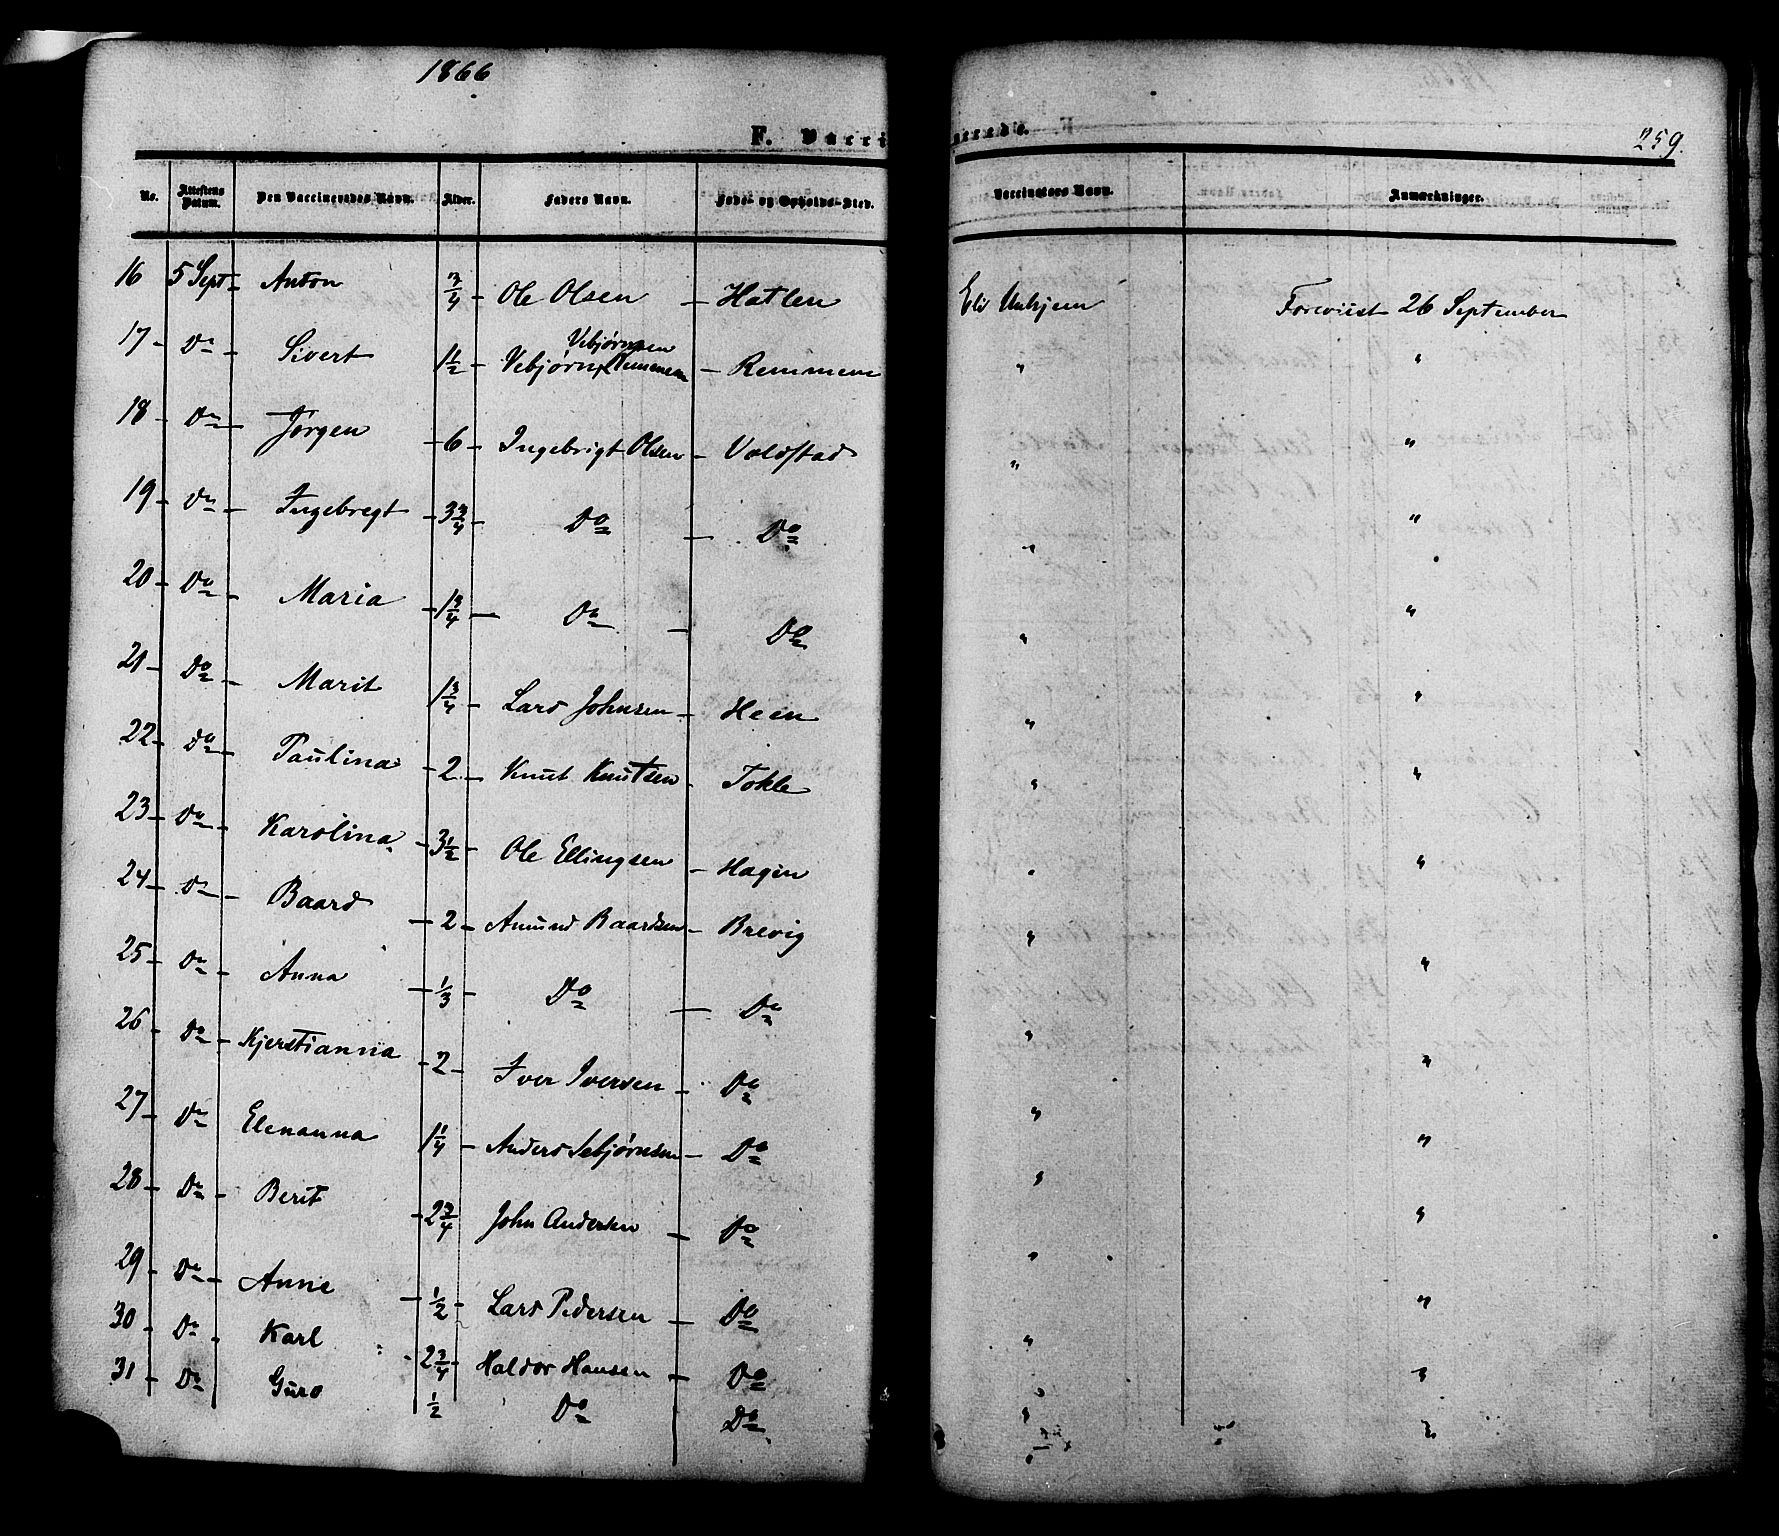 1866
F. Vacci
nerede.
259.
No. Attestens Datum. Den Vaccineredes Navn. Alder. Faders Navn. Føde- og Opholds-Sted. Vaccinators Navn. Anmærkninger.
16 5 Sept Anton 3/4 Ole Olsen Hatlen Forevist 26 September
Vebjørnsen
17 Do Sivert 1 1/2 Vebjørn Remmem Remmem " "
18 Do Jørgen 6 Ingebrigt Olsen Voldstad " "
19 Do Ingebregt 3 3/4 Do Do " "
20 Do Maria 1 3/4 Do Do " "
21 Do Marit 1 3/4 Lars Johnsen Heen " "
22 Do Paulina 2 Knut Knutsen Tokle " "
23 Do Karolina 3 1/2 Ole Ellingsen Hagen " "
24 Do Baard 2 Amund Baardsen Brevig " "
25 Do Anna 1/3 Do Do " "
26 Do Kjerstianna 2 Iver Iversen Do " "
27 Do Elenanna 1 1/4 Anders Sebjørnsen Do " "
28 Do Berit 2 3/4 John Andersen Do " "
29 Do Anne 1/2 Lars Pedersen Do " "
30 Do Karl 2 3/4 Haldor Hansen Do " "
31 Do Guro 1/2 Do Do " "